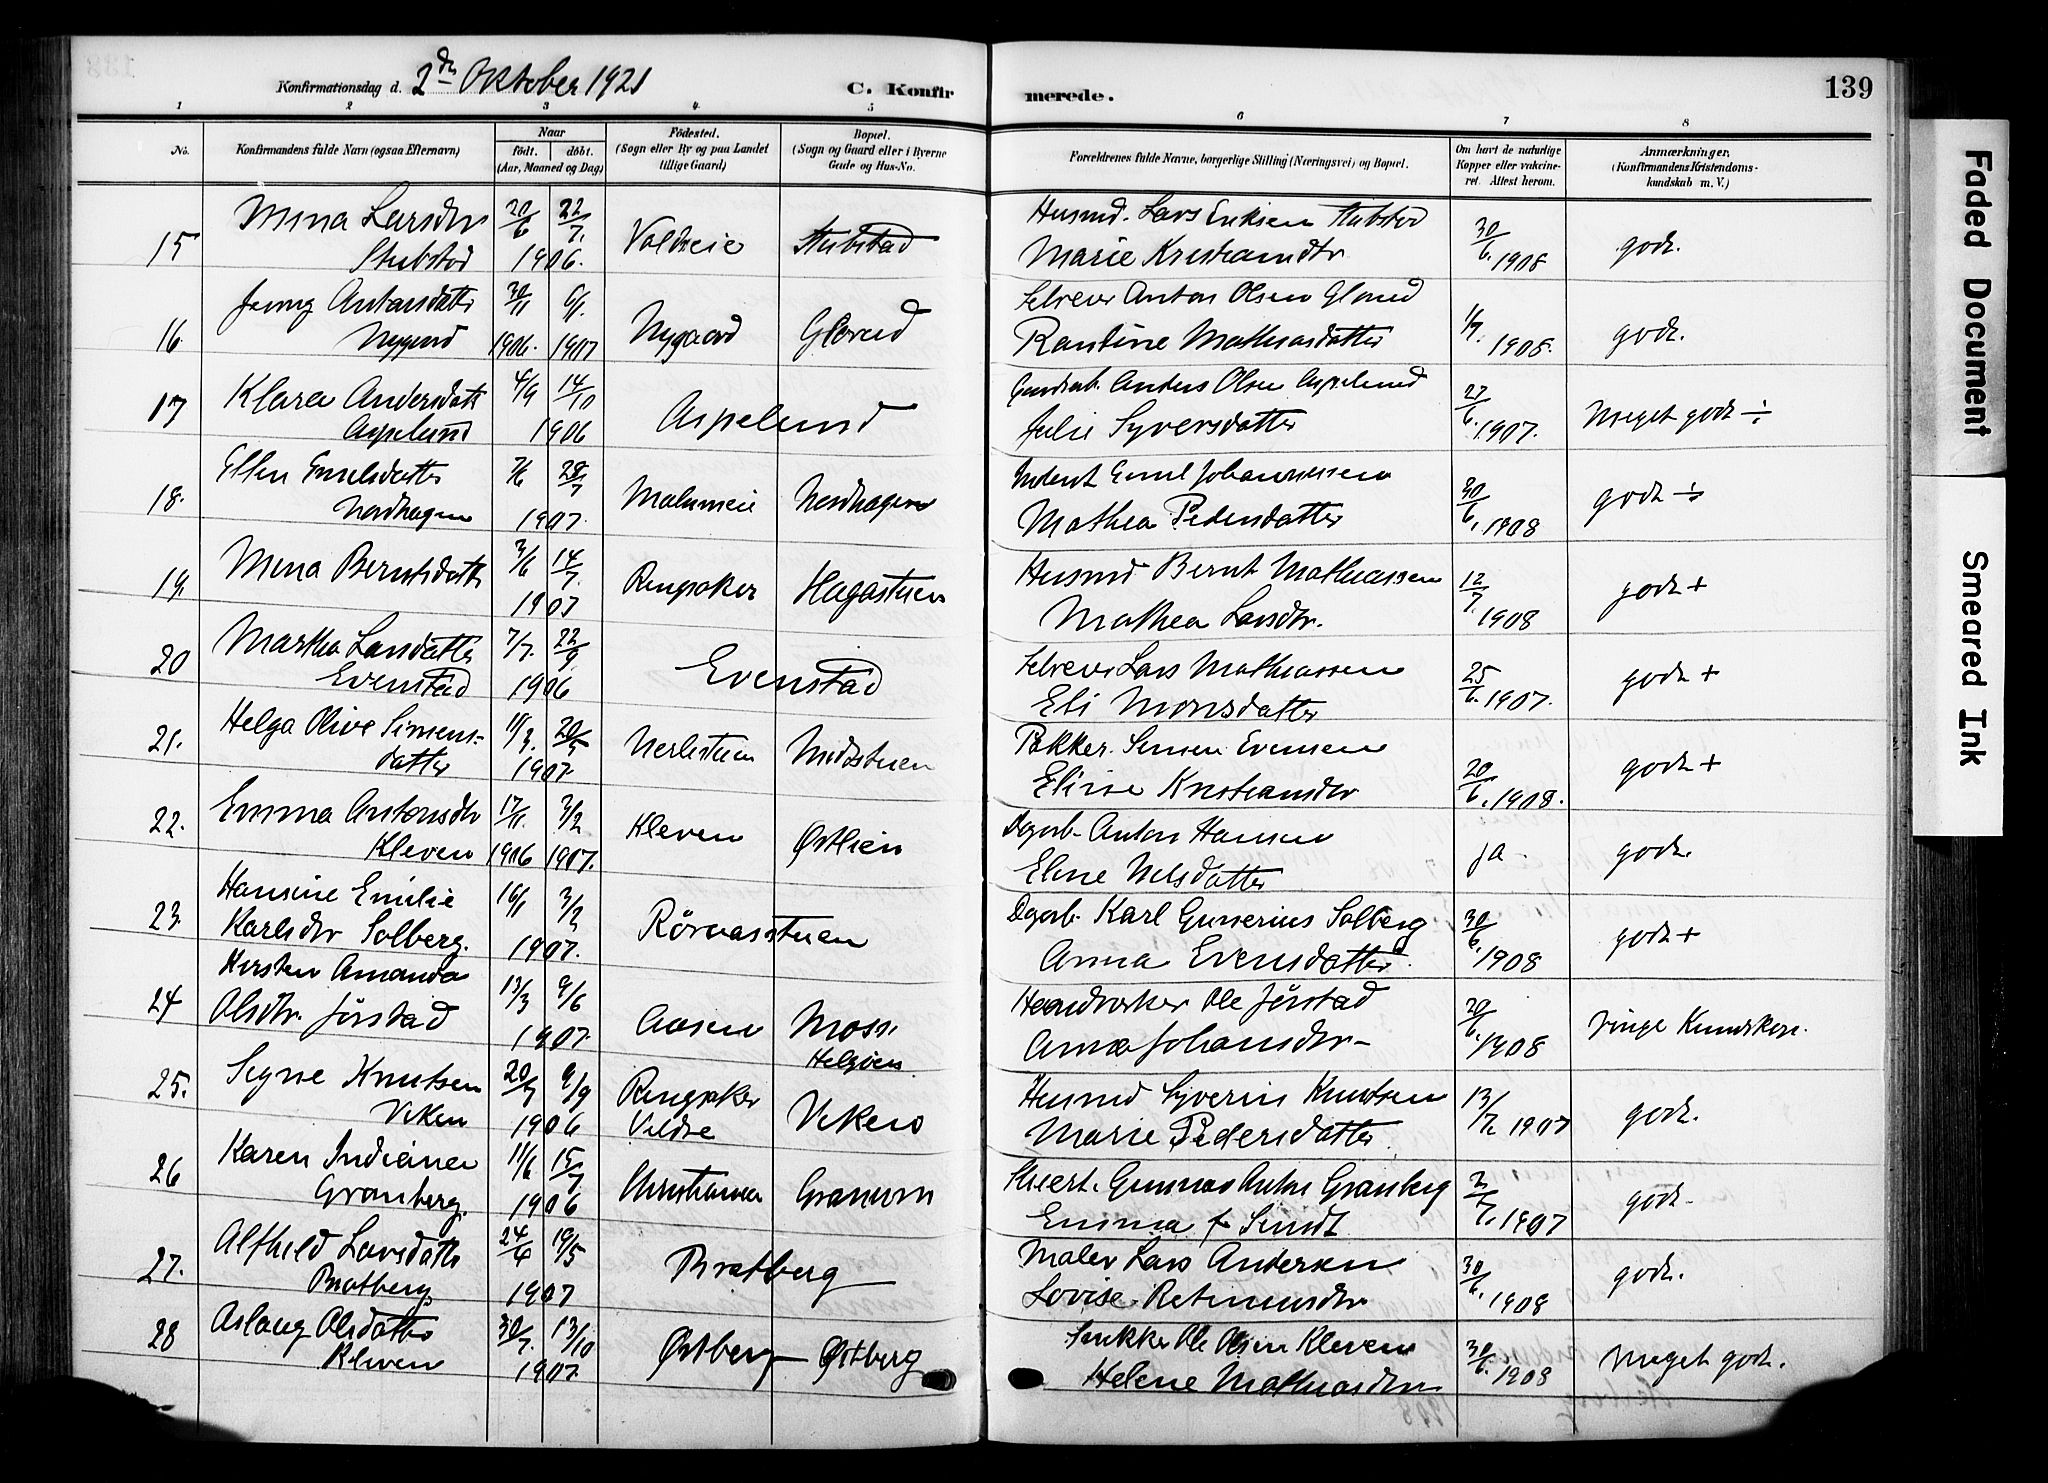 139
Konfirmationsdag d. 2den Oktober 1921
C. Konfirmerede.
1 2 3 4 5 6 7 8
No.
Konfirmandens fulde Navn (ogsaa Efternavn)
Naar
født. døbt.
(Aar, Maaned og Dag)
Fødested.
(Sogn eller By og paa Landet tillige Gaard)
Bopæl.
(Sogn og Gaard eller i Byerne Gade og Hus-No.
Forældrenes fulde Navne, borgerlige Stilling (Næringsvei) og Bopæl.
Om havt de naturlige Kopper eller vaccineret. Attest herom.
Anmærkninger,
(Konfirmandens Kristendomskundskab m. V.)
15 Mina Larsdtr Stubstad 20/6 22/7. 1906. Voldheie Stubstad Husmd. Lars Eriksen Stubstad
Marie Kristiansdtr 30/6. 1908 godt.
16. Jenny Antonsdatter Nygaard 30/11 1906. 6/1. 1907 Nygaard Glorud Selveier Anton Olsen Glorud
Mathiasdatter 1/7. 1908. godt.
17 Klara Andersdatter Aspelund 4/9 14/10 1906 Aspelund Gaardarb. Anders Olsen Aspelund
Julie Syversdatter 27/6. 1907. Meget godt ÷
18. Ellen Emilsdatter Nordhagen 7/6 28/7 1907. Nordhagen Emil Johannessen
Mathea Pedersdatter 30/6. 1908 godt ÷
19. Mina Berntsdatter 3/6 14/7. 1907 Ringsaker Hagastuen Husmd Bernt Mathiassen
Mathea Larsdtr. 12/7. 1908 godt +
20 Martha Larsdatter Evenstad 7/7. 22/9. 1906 Evenstad Selveier Lars Mathiassen
Eli Monsdatter 25/6. 1907. godt +
21. Helga Olive Simensdatter 20/5 1907. Nerlistuen Midtstuen Simen Evensen
Elise Kristiansdtr 20/6. 1908. godt +
22. Emma Antonsdtr Kleven 17/11. 1906 3/2 1907. Kleven Østlien Dagarb. Anton Hansen
Eline Nilsdatter ja. godt.
23. Hansine Emilie Karlsdtr Solberg. 16/1 3/2 1907. Röraasstuen Dagarb. Karl Gunerius Solberg
Anna Evensdatter 30/6. 1908 godt +
24 Kirsten Amanda Olsdtr. Jørstad 13/3 9/6 1907. Aasen Moss Helgøen Haandverker Ole Jørstad
Anna Johansdtr. 20/6. 1908 ringe Kundskap.
25. Signe Knutsen Viken 9/9 1906 Ringsaker Veldre Viken Husmd Syverin Knutsen
Marie Pedersdatter 1907 godt.
26 Karen Indiane Granberg. 11/6 15/7 1906 Kristiania Granum Gunnar Anton Granberg
Emma f. Smidt 1907 godt.
27. Alfhild Larsdatter Bratberg 24/4 19/5 1907 Bratberg Maler Lars Andersen
Lovise 30/6. 1908 godt.
28 Aslaug Olsdatter Kleven 30/7. 13/10 1907. Østberg Østberg Snekker Ole Olsen Kleven
Helene Mathiasdtr 30/6. 1908 Meget godt.
Faded Document
Smeared Ink